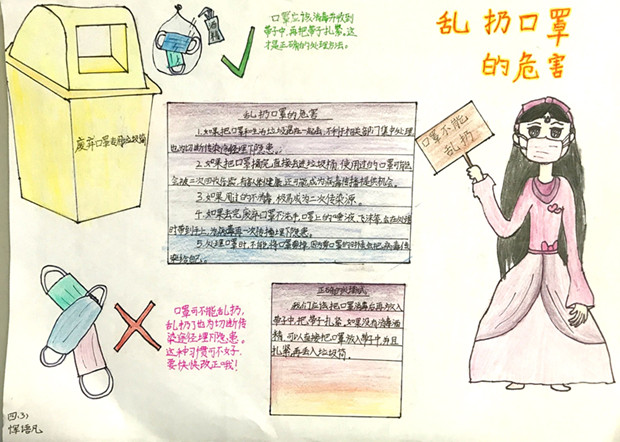 乱扔口罩
的危害
口罩应该消毒并收到
带子中,再把带子扎紧。这
才是正确的处理方法。
酒精
废弃口罩专用垃圾箱
口罩不能
乱扔
乱扔口罩的危害
1.如果把口罩和生活垃圾混在一起丢,不利于相关部门集中处理
也为切断传染途径埋下隐患;
2.如果把口罩摘完直接丢进垃圾桶,使用过的口罩可能
会被二次回收后卖,有害人们健康,还可能成为病毒传播提供机会。
3.如果用过的不消毒,极易成为二次传染源。
4.如果丢完废弃口罩不洗手,口罩上的唾液、飞沫等会在处理
时带到手上,为病毒再一次传播埋下隐患。
5.处理口罩时,不能将口罩
正确的处理方法
我们应该把口罩消毒后再放入
带子中,把带子扎紧。如果没有消毒酒
精,可以直接把口罩放入带子中,并且
扎紧,再丢入垃圾筒。
口罩可不能乱扔,
乱扔了也为切断传
染途径埋下隐患。
这种习惯可不好,
要快快改正哦!
四.3)